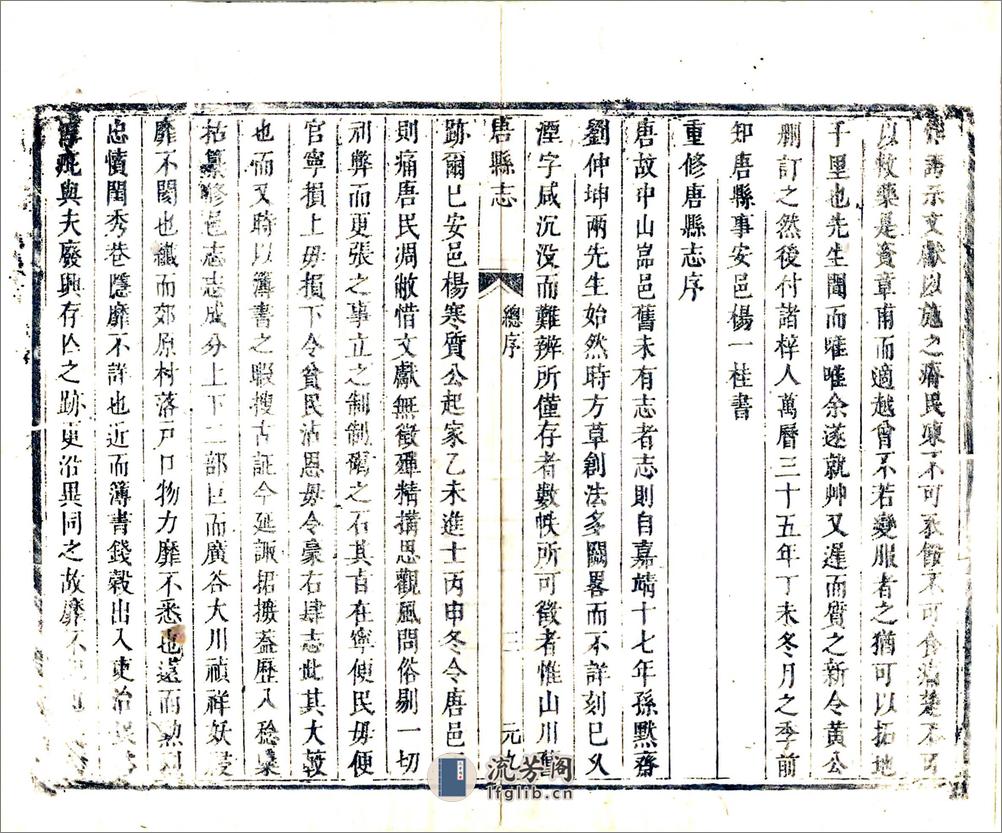 示文獻以施之瘠民陳不可衣飾不可食
以救藥是資章甫而適越曾不若變服者之猶可以拓地
千里也先生聞而唯唯余遂就艸又遲而質之新令黃公
刪訂之然後付諸梓人萬曆三十五年丁未冬月之季前
知唐縣事安邑楊一桂書
重修唐縣志序
唐故中山嵓邑舊未有志者志則自嘉靖十七年孫默齋
劉仲坤兩先生始然時方草創法多闊畧而不詳刻已久
湮字咸沉没而難辨所僅存者數帙所可徵者惟山川舊
唐縣志
總序
三
元九
跡爾已安邑楊寒質公起家乙未進士丙申冬令唐邑
則痛唐民凋敝惜文獻無徵殫精搆思觀風問俗剔一切
利弊而更張之事立之制制碣之石其旨在寧便民毋便
官寧損上毋損下令貧民沾恩毋令豪右肆志此其大較
也而又時以簿書之暇搜古証今延諏招攗葢歷八稔杲
拈纂修邑志志成分上下二部巨而廣谷大川禎祥妖祲
靡不閱也纖而郊原村落戸口物力靡不悉也遠而勲
忠憤閨秀巷隱靡不詳也近而簿書錢穀出入吏治
疵與夫廢興存亾之跡更沿異同之故靡不
流芳閣
lfglib.cn